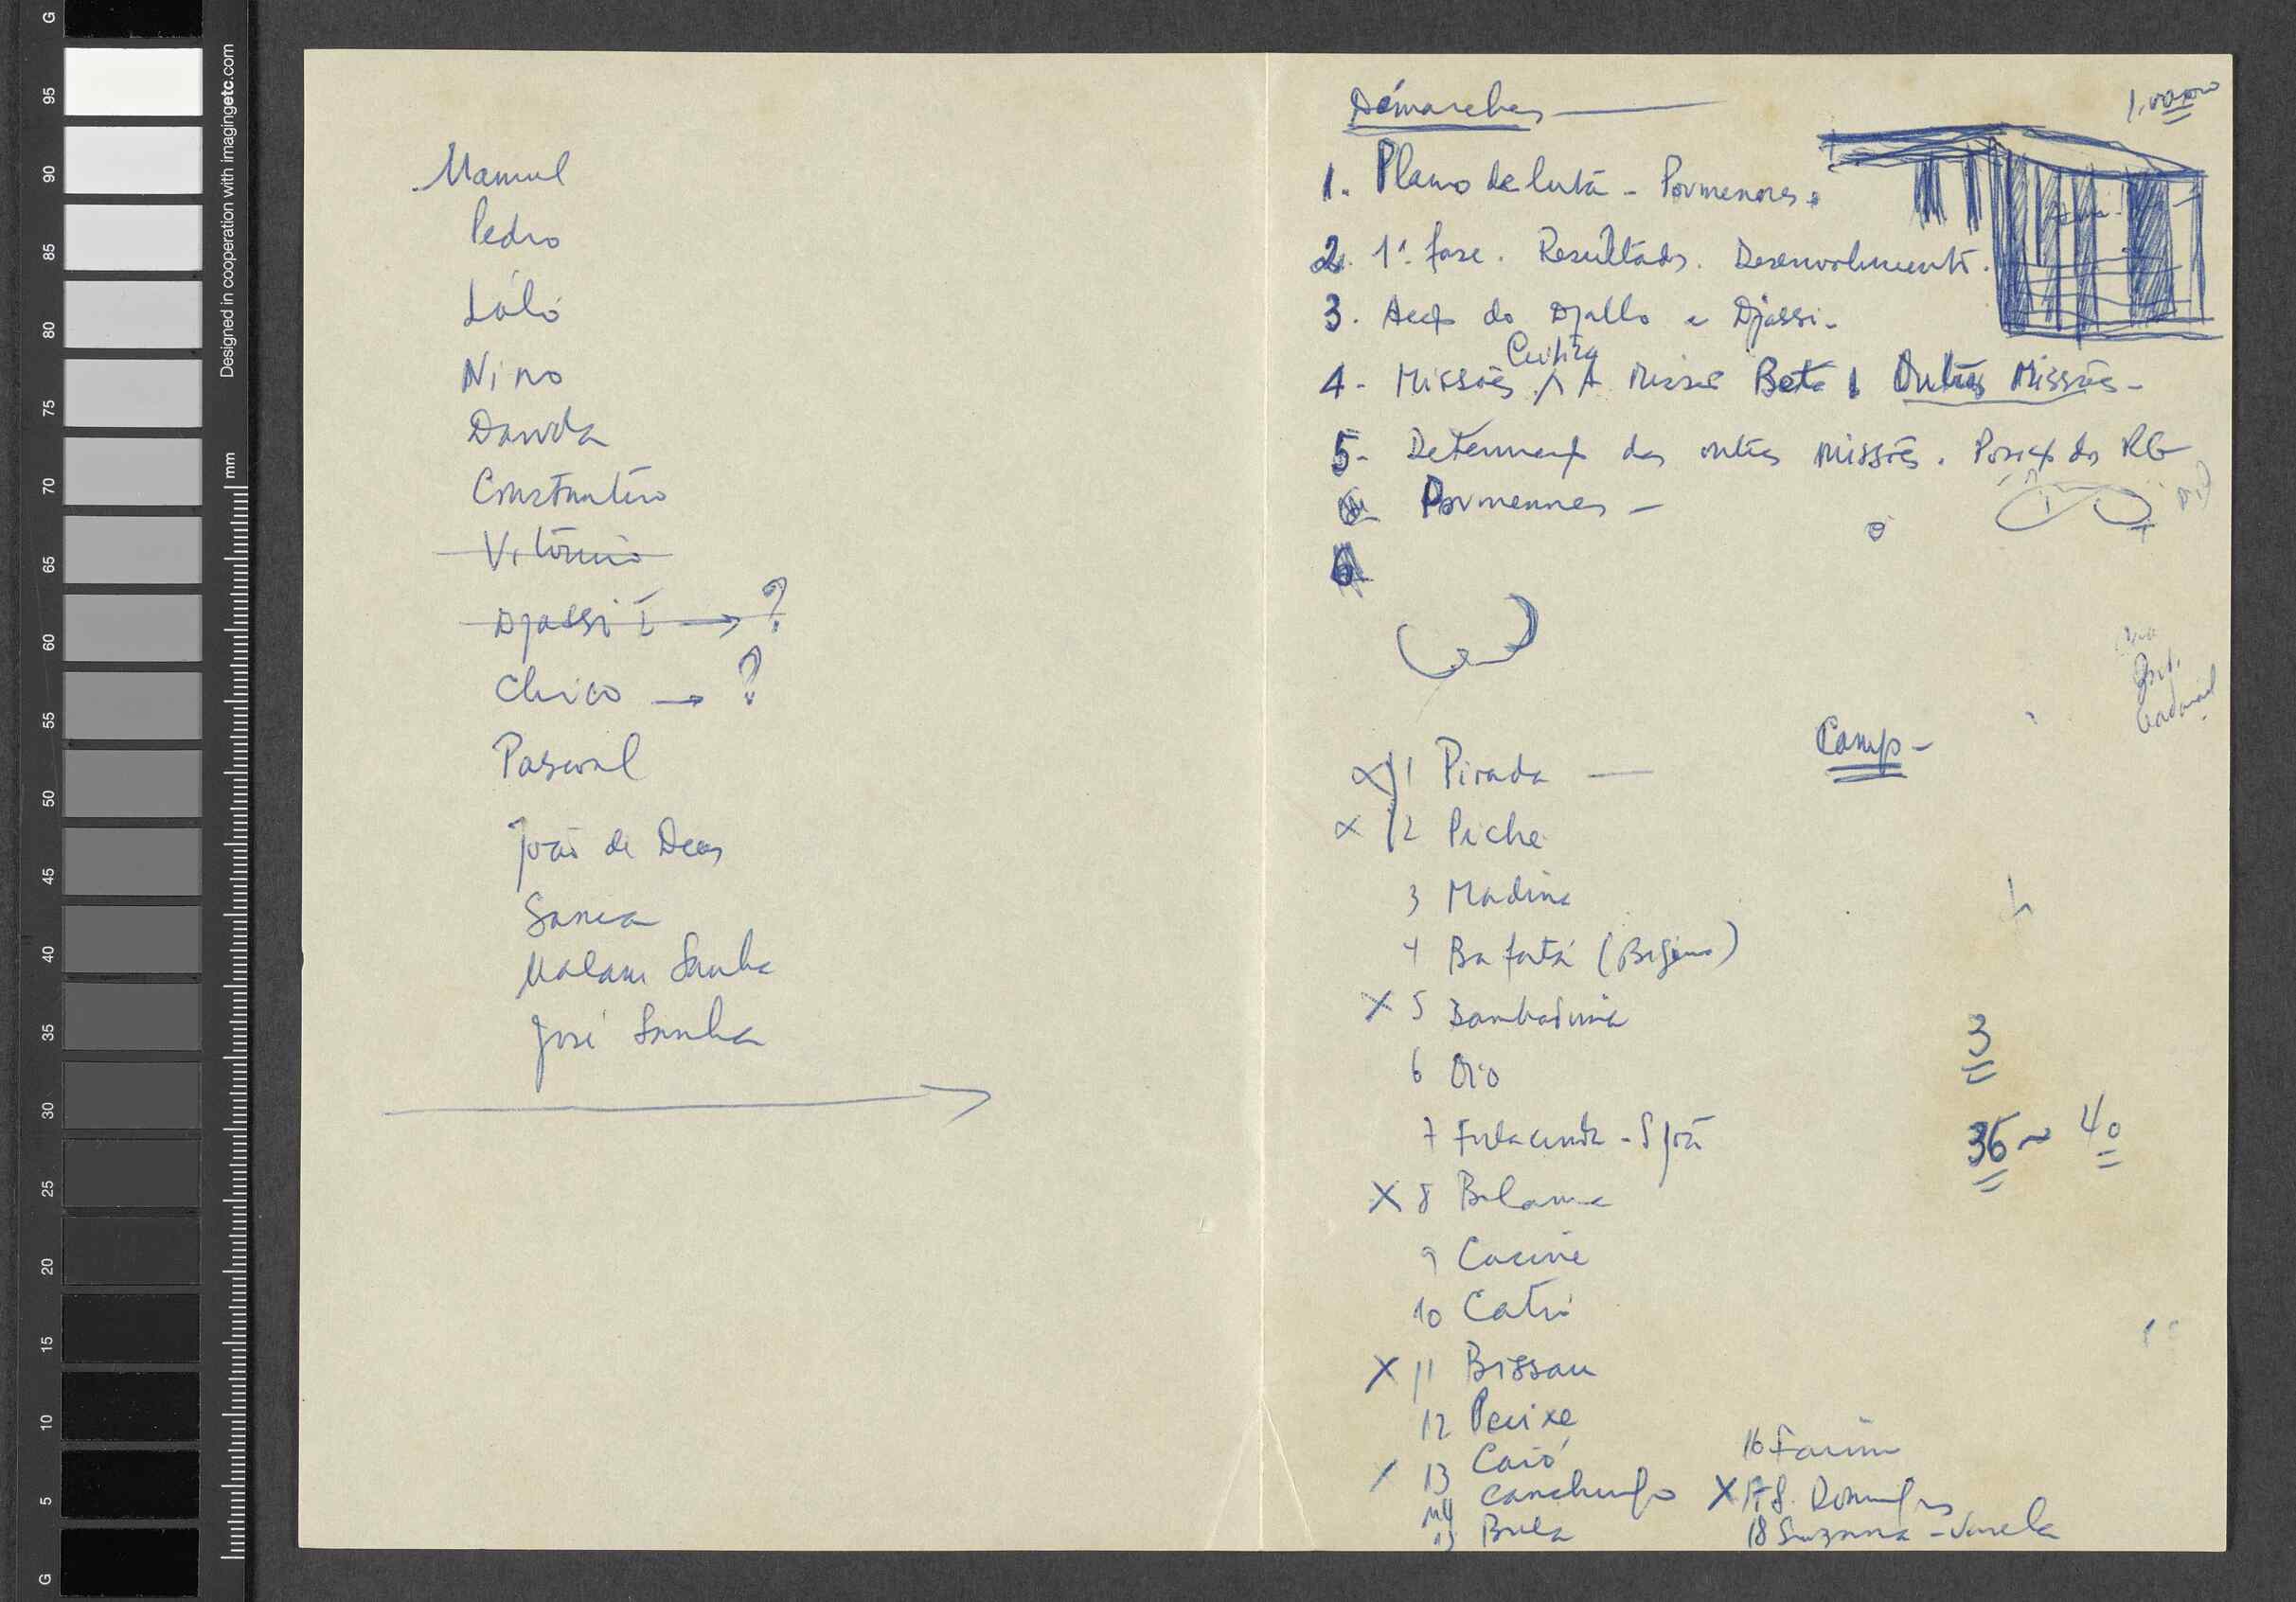 Manuel
Pedro
Láló
Nino
Dauda
Constantino
Vitorino
Djassi I → ?
Chico → ?
Pascoal
João de Deus
Sanca
Malam Sanha
José Sanha
Démarches
1.000000
1. Plano de luta - Pormenores.
2. 1ª fase. Resultados. Desenvolvimento.
3. do Djallo e Djassi.
4- Missões A Missão Beta Outras Missões-
5- das outras missões. do RG
Pormenores -
6
Camp-
X 1 Pirada
X 2 Piche
3 Madina
4 Bafatá
X 5 Bambadinca
6 Oio
7 Fulacunda - S João
X 8 Bolama
9 Cacine
10 Catió
X 11 Bissau
12 Pecixe
13 Caió
14 Canchungo
15 Bula
16 Farim
X 17 S. Domingos
18 Suzana - Varela
3
36 ~ 40
Designed in cooperation with imagingetc.com
mm
G
95
90
85
80
75
70
65
60
55
50
45
40
35
30
25
20
15
10
5
G